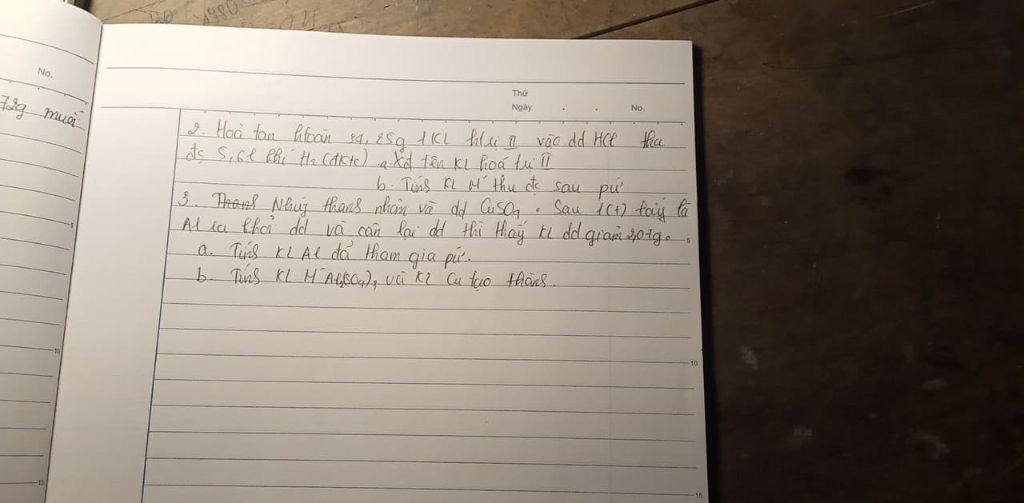 No.
72g muối
Thứ
Ngày . . No.
2. Hoà tan htoàn 34,25g 1 KL htrị II vào dd HCl thu
đc 5,6l khí H2 (đktc) a. Xđ tên KL hoá trị II
b. Tính KL M' thu đc sau pứ
3. Thanh Nhúg thanh nhôm và dd CuSO4. Sau 1(t) lấy lá
Al ra khỏi dd và cân lại dd thì thấy KL dd giảm 2,07g.
a. Tính KL Al đã tham gia pứ.
b. Tính KL M' Al2(SO4)3 và KL Cu tạo thành.
5
5
10
10
15
15